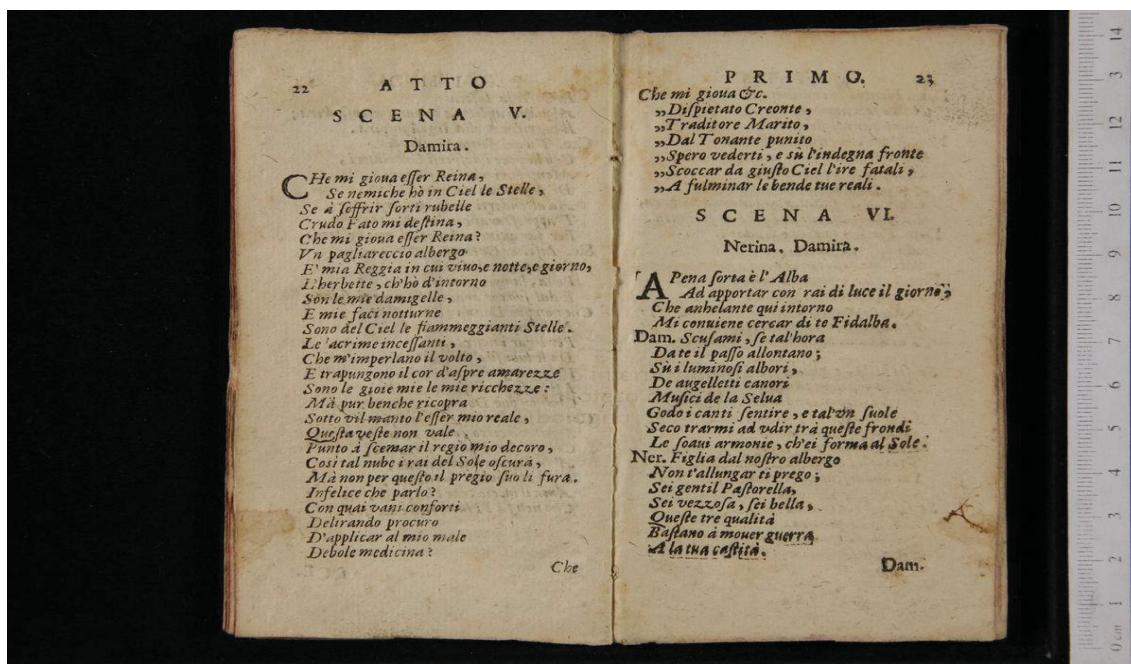 22 ATTO
SCENA V.
Damira.
CHe mi gioua eſſer Reina,
Se nemiche hò in Ciel le Stelle,
Se à ſoffrir ſorti rubelle
Crudo Fato mi deſtina,
Che mi gioua eſſer Reina?
Vn pagliareccio albergo
E' mia Reggia in cui viuo, e notte, e giorno,
L'herbette, ch'hò d'intorno
Son le mie damigelle,
E mie faci notturne
Sono del Ciel le fiammeggianti Stelle.
Le 'acrime inceſſanti,
Che m'imperlano il volto,
E trapungono il cor d'aſpre amarezze
Sono le gioie mie le mie ricchezze:
Mà pur benche ricopra
Sotto vil manto l'eſſer mio reale,
Queſta veſte non vale
Punto à ſcemar il regio mio decoro,
Cosi tal nube i rai del Sole oſcura,
Mà non per queſto il pregio ſuo li fura.
Infelice che parlo?
Con quai vani conforti
Delirando procuro
D'applicar al mio male
Debole medicina?
Che
PRIMO. 23
Che mi gioua &c.
„Diſpietato Creonte,
„Traditore Marito,
„Dal Tonante punito
„Spero vederti, e sù l'indegna fronte
„Scoccar da giuſto Ciel l'ire fatali,
„A fulminar le bende tue reali.
SCENA VI.
Nerina. Damira.
APena ſorta è l'Alba
Ad apportar con rai di luce il giorno,
Che anhelante qui intorno
Mi conuiene cercar di te Fidalba.
Dam. Scuſami, ſe tal'hora
Da te il paſſo allontano;
Sù i luminoſi albori,
De augelletti canori
Muſici de la Selua
Godo i canti ſentire, e tal'vn ſuole
Seco trarmi ad vdir trà queſte frondi
Le ſoaui armonie, ch'ei forma al Sole.
Ner. Figlia dal noſtro albergo
Non t'allungar ti prego;
Sei gentil Paſtorella,
Sei vezzoſa, ſei bella,
Queſte tre qualità
Baſtano à mouer guerra
A la tua caſtità.
Dam.
14
3
12
11
10
9
8
7
6
5
4
3
2
1
0 cm